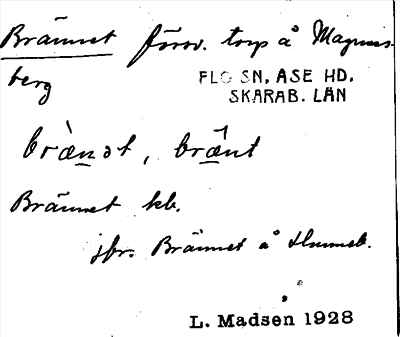 Brännet försv. torp å Magnus-
berg
FLO SN, ÅSE HD.
SKARAB. LÄN
bræ̀nət, brænt
Brännet kb.
jfr. Brännet å Hunneb.
L. Madsen 1928